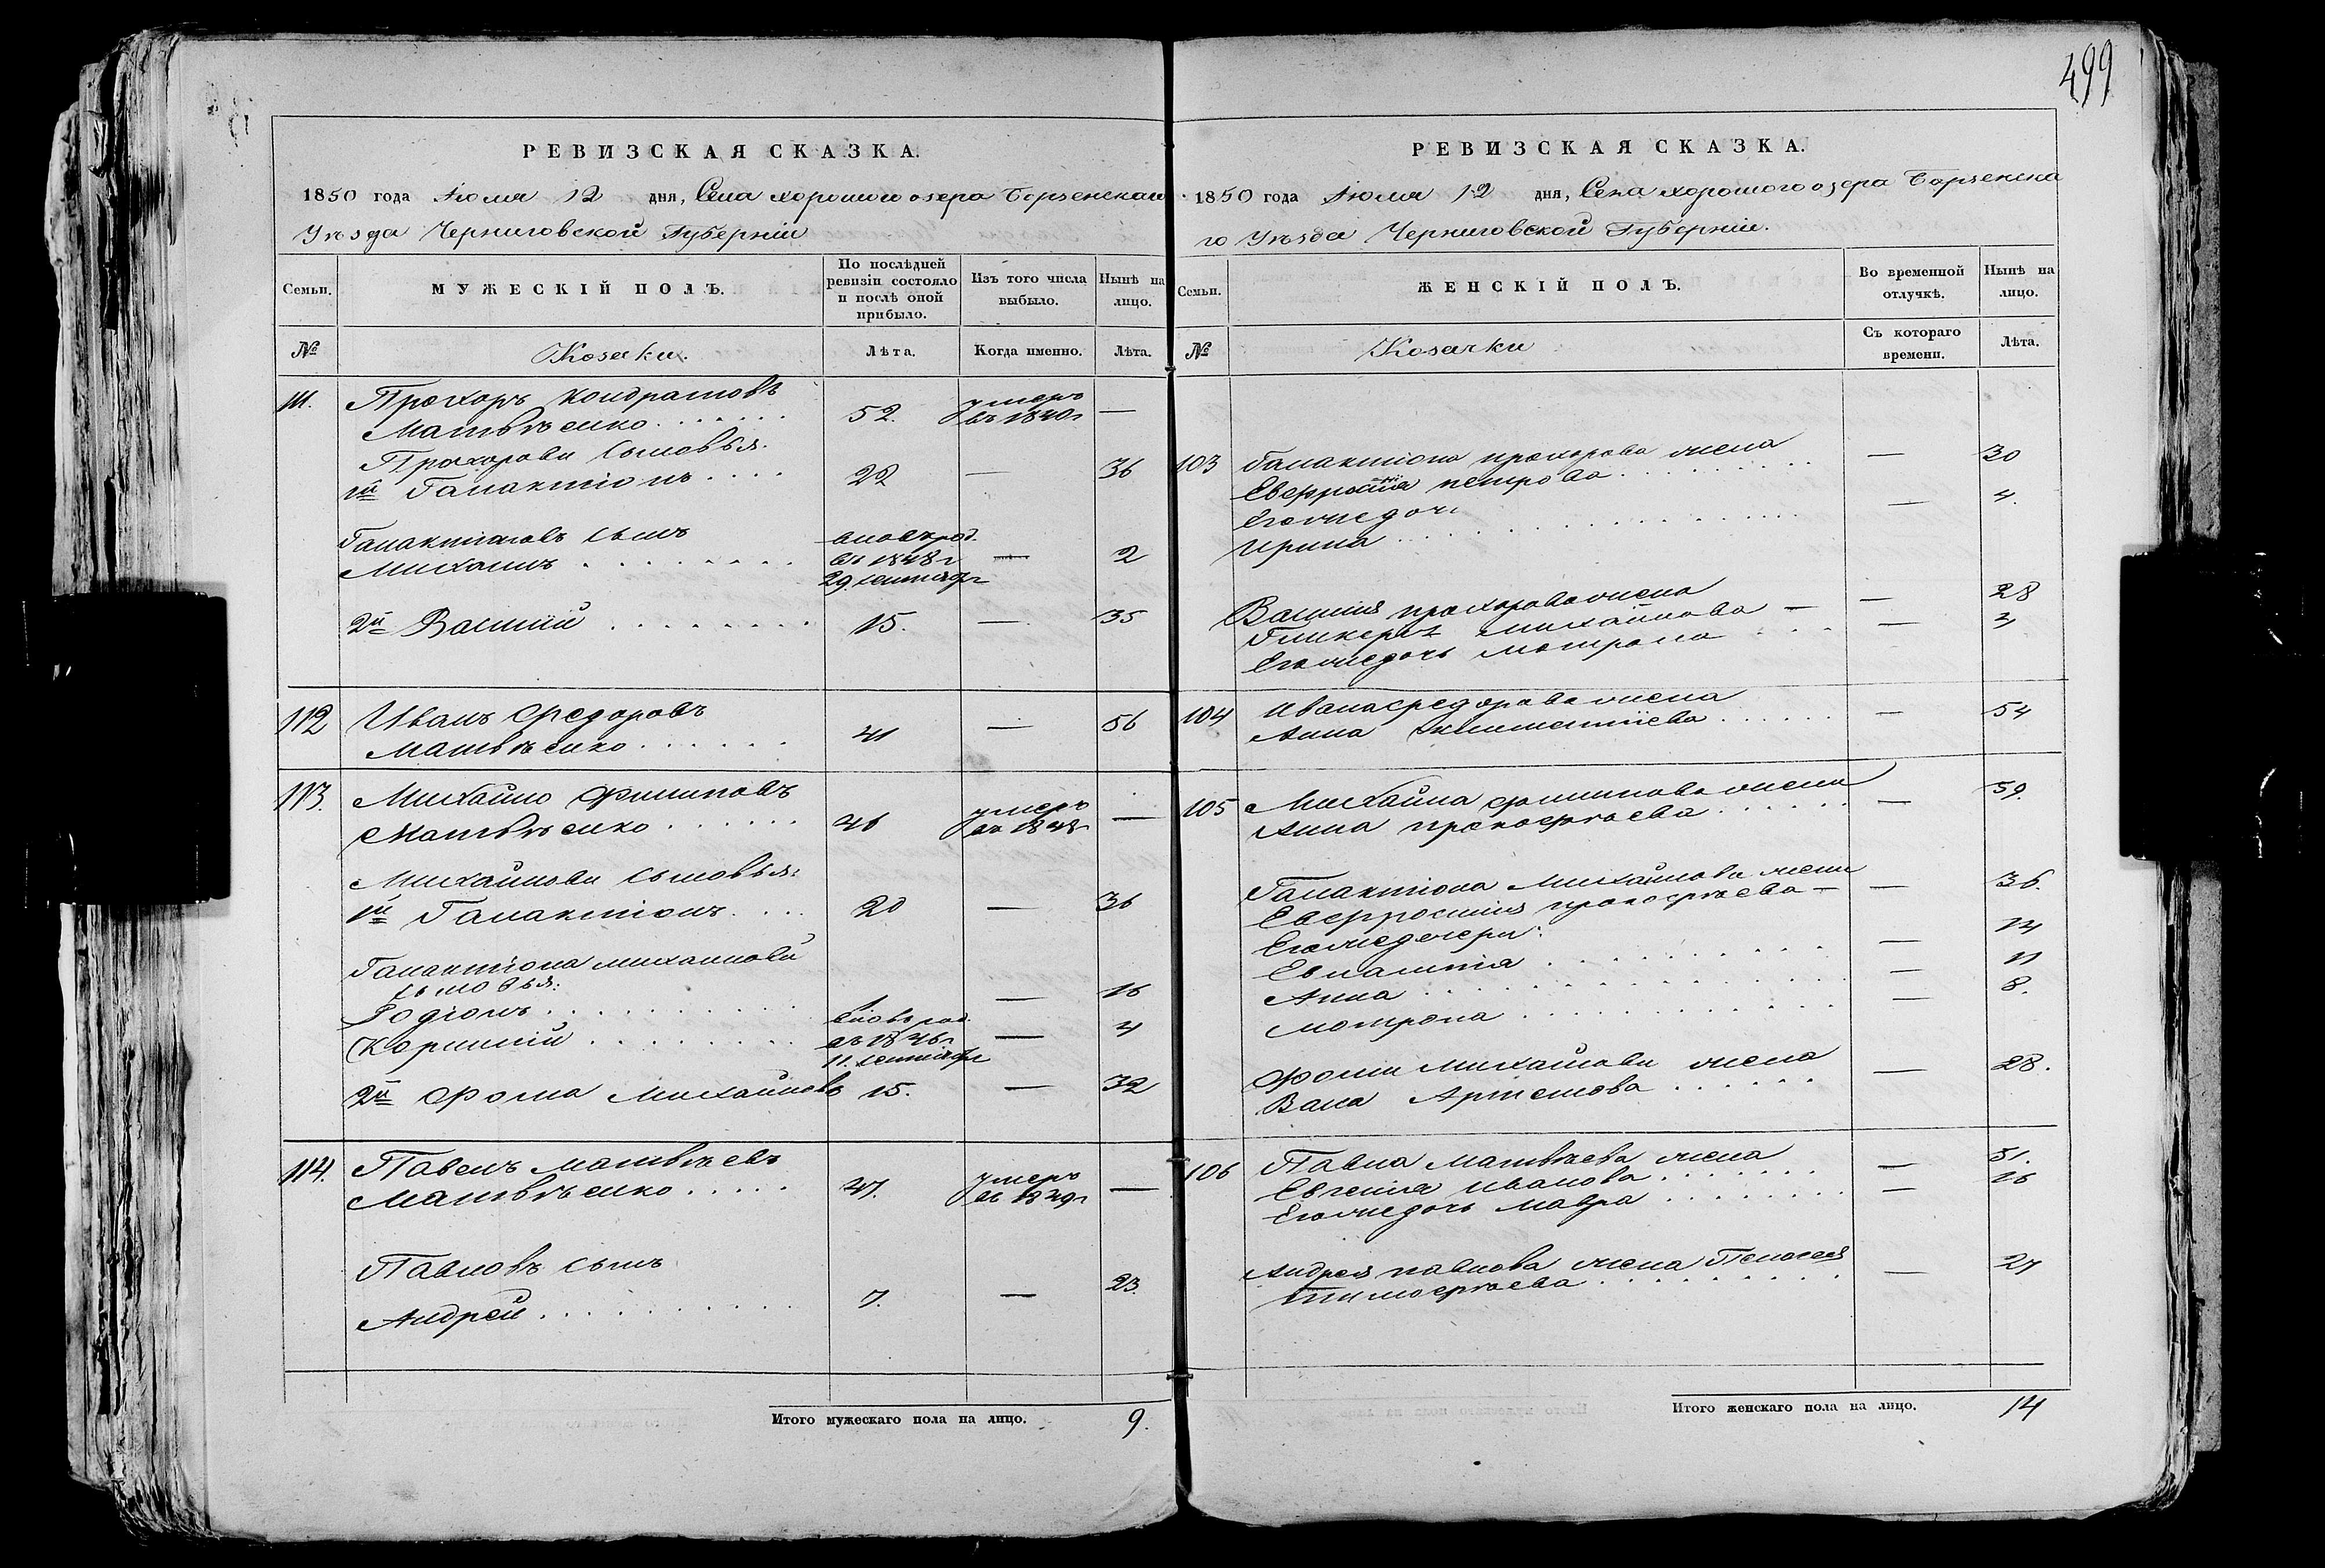 499
РЕВИЗСКАЯ СКАЗКА.
1850 года Июля 12 дня, Села хорошого озера Борзенскаго
Уѣзда Черниговской Губерніи
Семьи.
МУЖЕСКІЙ ПОЛЪ.
По послѣдней ревизіи состояло и послѣ оной прибыло.
Изъ того числа выбыло.
Нынѣ на лицо.
№
Козаки.
Лѣта.
Когда именно.
Лѣта.
111. Прохоръ Кондратовъ
Матвѣенко 52. умеръ въ 1840г —
Прохорови сыновья.
1й Галактіонъ 22 — 36
Галактіоновъ сынъ
Михаилъ вновь род. въ 1848г 29 сентября — 2
2й Василій 15. — 35
112 Иванъ Федоровъ
Матвѣенко 41 — 56
113. Михайло Филиповъ
Матвѣенко 46 умеръ въ 1848г —
Михайлови сыновья:
1й Галактіонъ 20 — 36
Галактіона михайлови
сыновья:
Родіонъ — 16
Корнилій вновь род. въ 1846г 11. сентября — 4
2й Фома Михайловъ 15. — 32
114. Павелъ Матвѣевъ
Матвѣенко 47. умеръ въ 1849г —
Павловъ сынъ
Андрей 7. — 23.
Итого мужескаго пола на лицо. 9.
РЕВИЗСКАЯ СКАЗКА.
1850 года Июля 12 дня, Села хорошого озера Борзенска
го Уѣзда Черниговской Губерніи.
Семьи.
ЖЕНСКІЙ ПОЛЪ.
Во временной отлучкѣ.
Нынѣ на лицо.
№
Козачки
Съ котораго времени.
Лѣта.
103 Галактіона прохорова жена
Евфросинія петрова — 30
Егожедочь
Ирина — 4.
Василія прохорова жена
Гликерія михайлова — — 28
Егожедочь мотрона — 3
104 Ивана федорова жена
Анна — 54
105 Михайла филипова жена
Анна прокофіева — 59.
Галактіона Михайлова жена
Евфросинія прокофіева — — 36.
Егожедочери:
Евлампія — 14
Анна — 11
мотрона — 8.
Фоми Михайлови жена
Васа Артемова — 28.
106 Павла Матвѣева жена
Евгенія Иванова — 51.
Егожедочь Мавра — 16
Андрея павлова жена Пелагея
тимофѣева — 27
Итого женскаго пола на лицо. 14